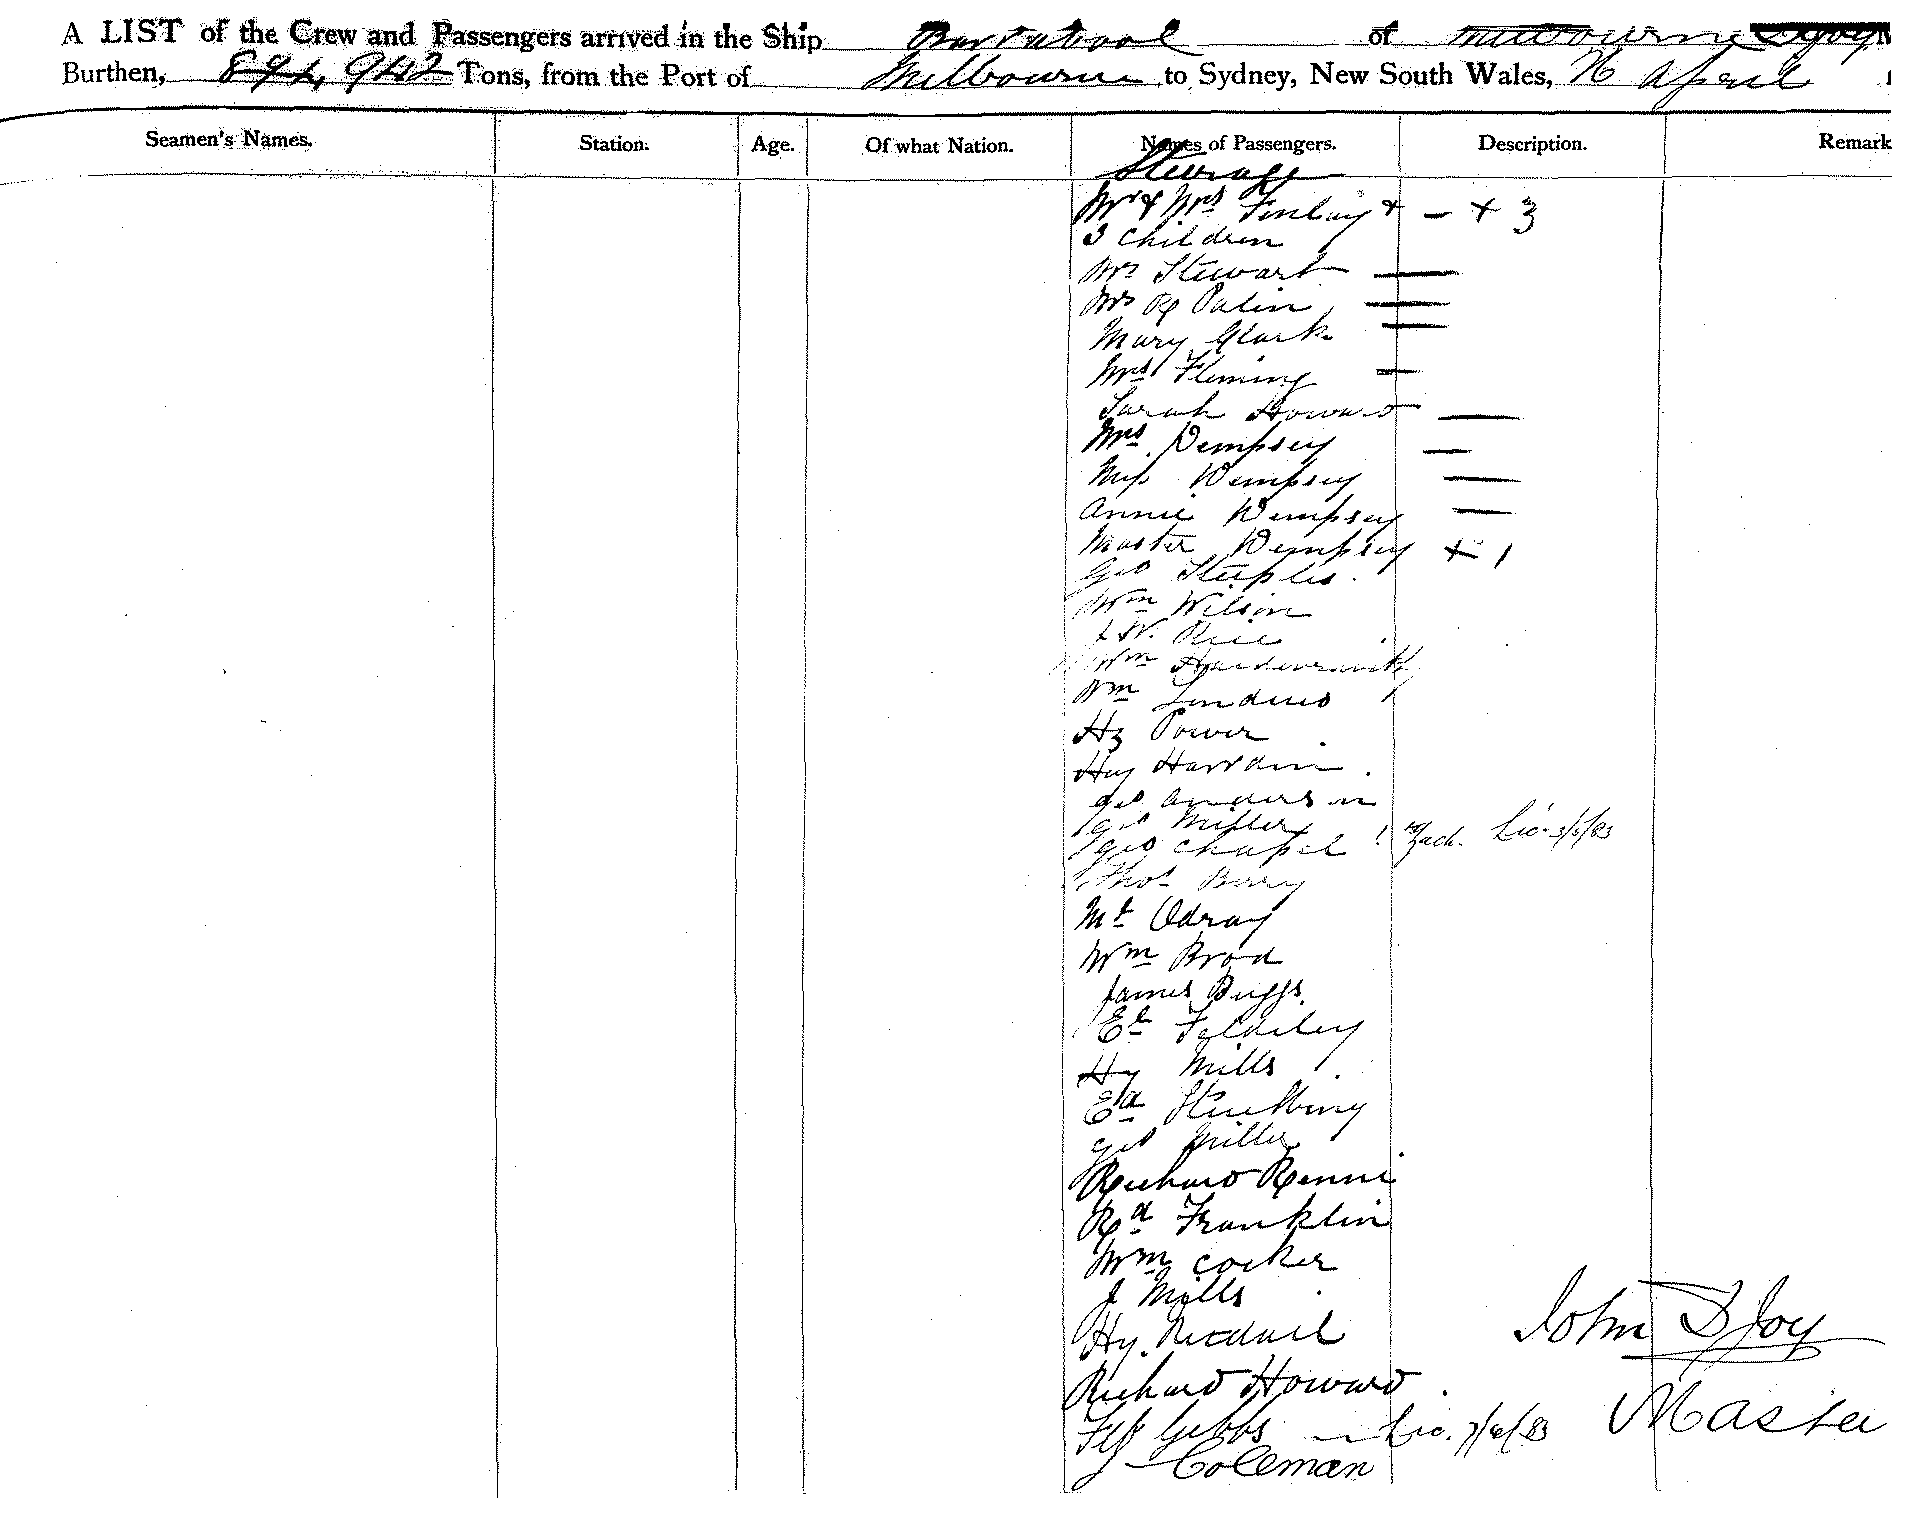 A LIST of the Crew and Passengers arrived in the Ship Barrabool of Melbourne
Burthen, 942 Tons, from the Port of Melbourne to Sydney, New South Wales, April
Seamen's Names. Station. Age. Of what Nation. Names of Passengers. Description. Remark
Steerage
Mr & Mrs Finlay + - + 3
3 Children
Mrs Stewart
Mrs R Palin
Mary Clark
Mrs Fleming
Sarah Howard
Mrs Dempsey
Miss Dempsey
Annie Dempsey
Master Dempsey + 1
Geo Steeples
Wm Wilson
W. Rice
Wm
Wm
Hy Power
Hy
Geo Anderson
Geo Miller
Geo Chapel Zach.
Thos Berry
Mr Odray
Wm Brod
James Buggs
Ed
Hy Mills
Ed
Geo Miller
Richard Renni
Rd Franklin
Wm Cocker
J Mills
Hy.
Richard Howard
John D Joy
Master
Gibbs Lic. 7/6/83
Coleman